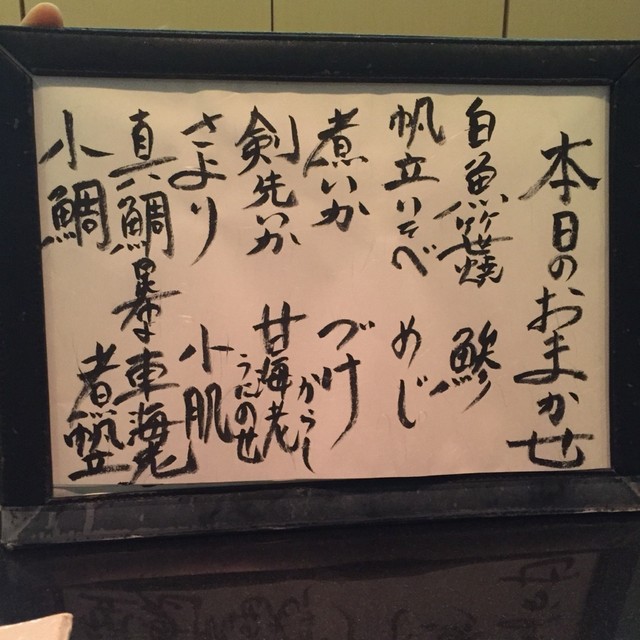 本日のおまかせ
白魚笹焼 鯵
帆立いそべ めじ
煮いか づけ からし
剣先いか 甘海老 うにのせ
さより 小肌
真鯛 車海老
小鯛 煮帆立